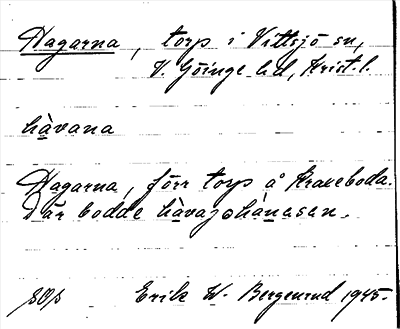 Hagarna, torp i Vittsjö sn,
V. Göinge hd, Krist. l.
hàvana
Hagarna, förr torp å Kraxeboda.
Där bodde hàvajohànasen.
Erik W. Bergenrud 1945.